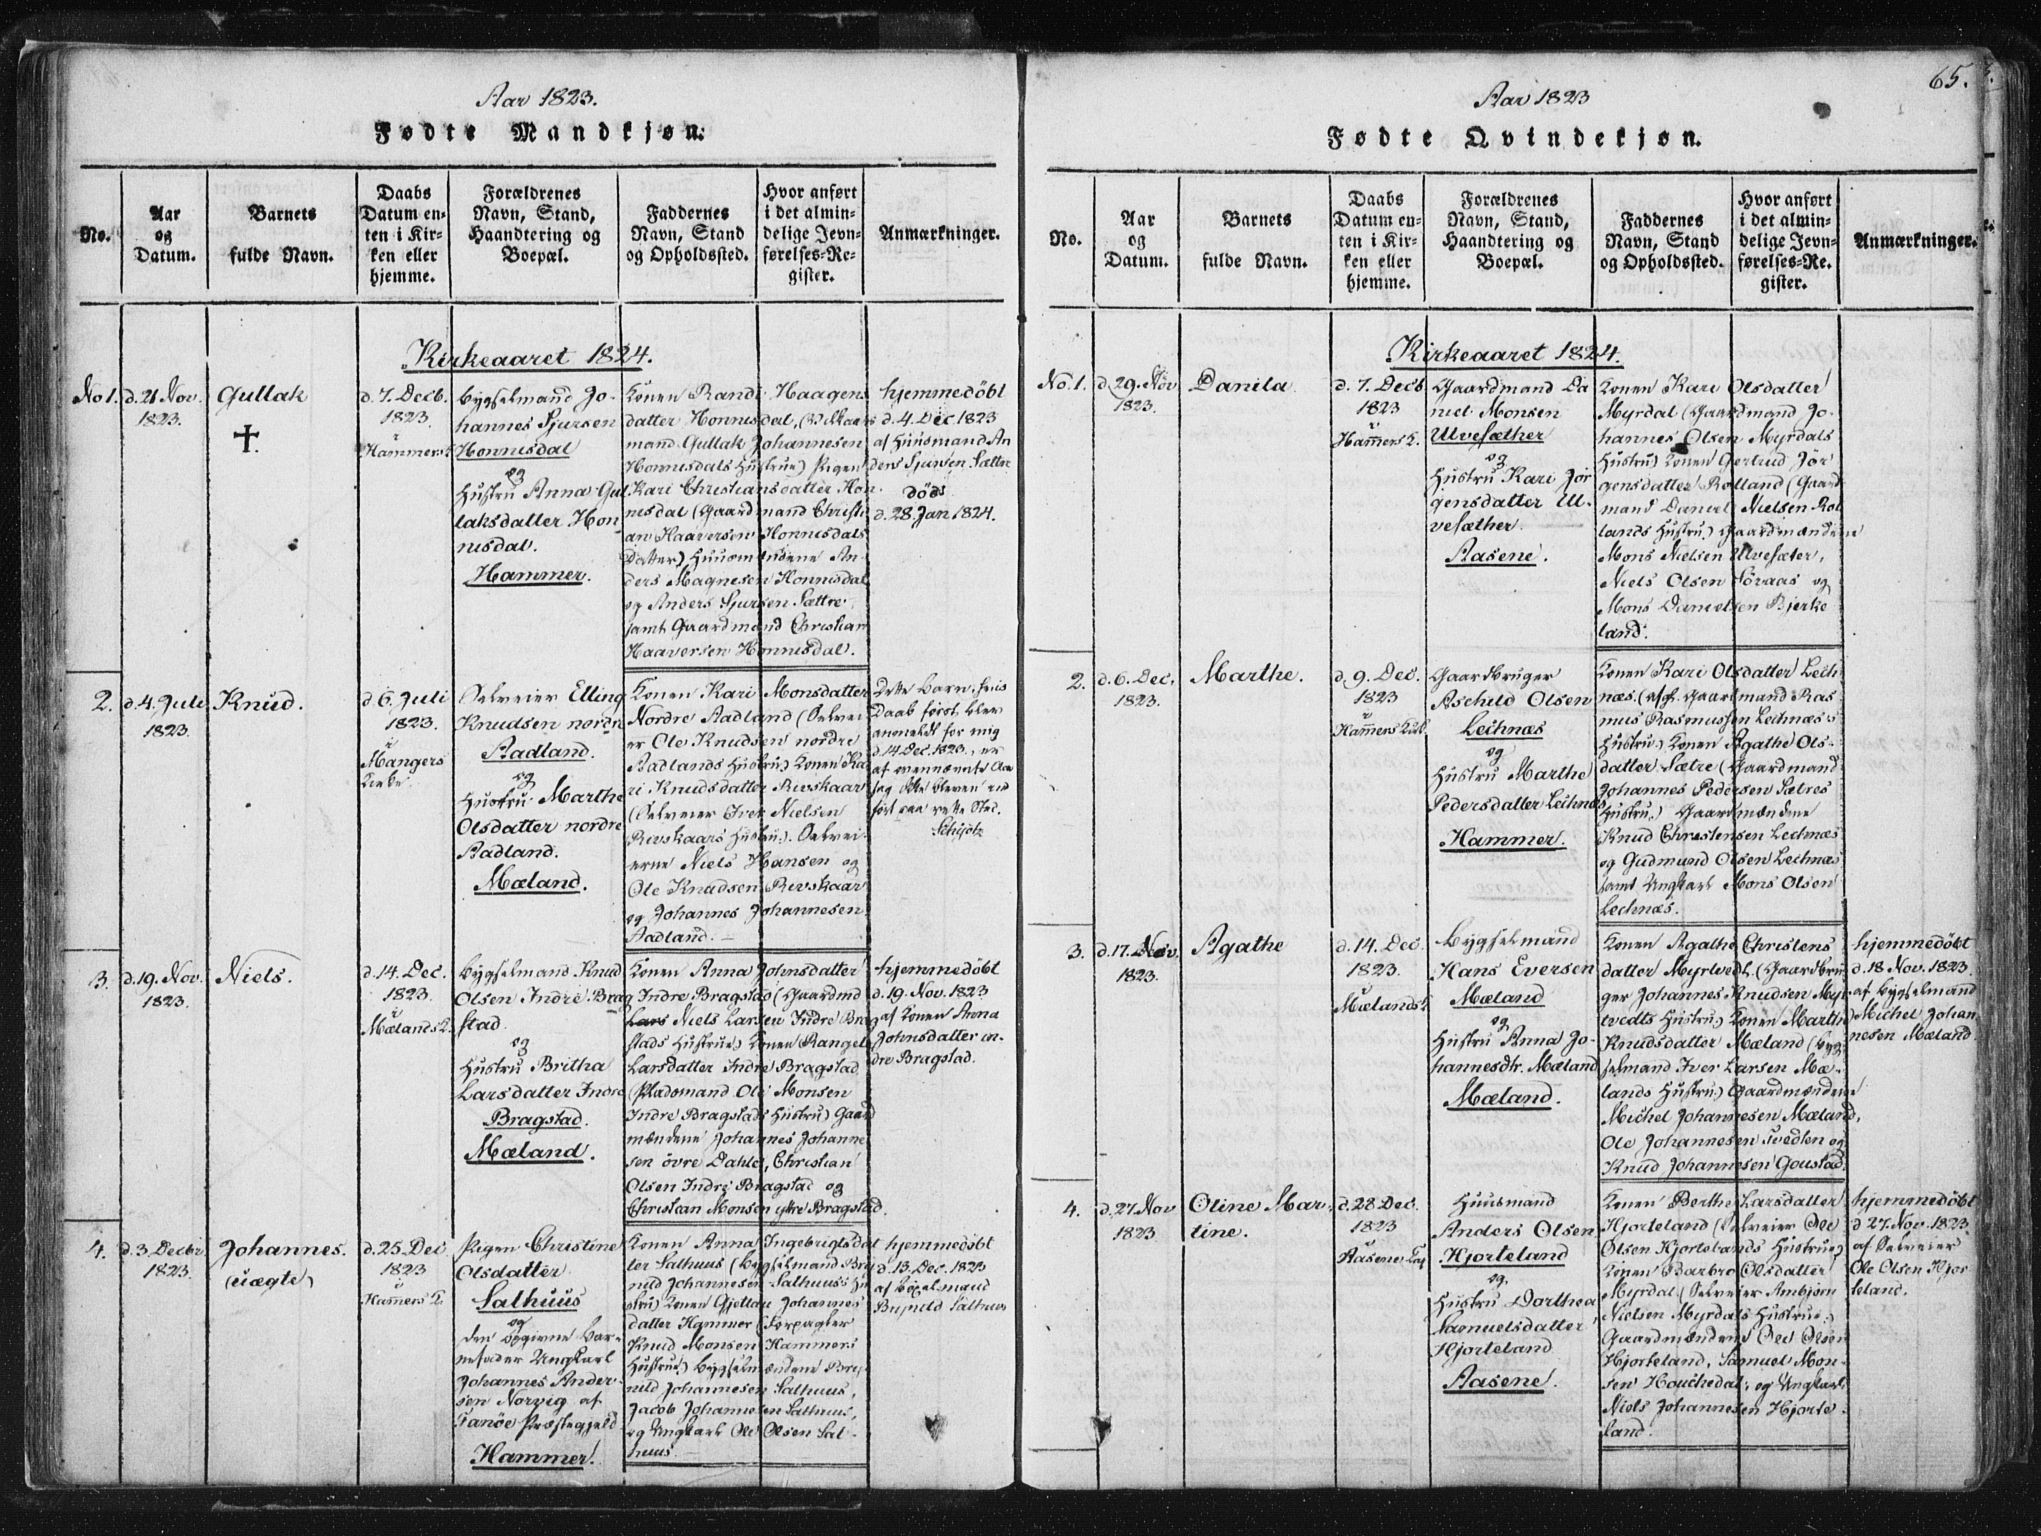 Aar 1823.
Fødte Mandkjøn.
No.
Aar
og
Datum.
Barnets
fulde Navn.
Daabs
Datum en-
ten i Kir-
ken eller
hjemme.
Forældrenes
Navn, Stand,
Haandtering og
Boepæl.
Faddernes
Navn, Stand
og Opholdssted.
Hvor anført
i det almin-
delige Jevn-
førelses-Re-
gister.
Anmærkninger.
Kirkeaaret 1824.
No 1.
d. 21 Nov.
1823.
Gullak
d. 7. Decb.
1823.
i
Hammers K.
Bygselmand Jo-
hannes Sjursen
Honnisdal
og
Hustru Anna Gul
laksdatter Hon-
nisdal.
Hammer.
Konen Randi Haagens
datter Honnisdal, (Vilkaars
mand Gullak Johannesen
Honnisdals Hustrue) Pigen
Kari Christiansdatter Hon-
nisdal (Gaardmand Christi
an Haaversen Honnisdals
Datter) Huusmændene An-
ders Magnesen Honnisdal
og Anders Sjursen Sættre,
samt Gaardmand Christian
Haaversen Honnisdal.
hjemmedöbt
d. 4. Dec 1823
af Huusmand An
ders Sjursen Sættre
död
d. 28. Jan 1824.
2.
d. 4. Juli
1823.
Knud.
d. 6. Juli
1823.
i
Mangers
Kirke.
Selveier Elling
Knudsen nordre
Aadland.
og
Hustru Marthe
Olsdatter nordre
Aadland.
Mæland.
Konen Kari Monsdatter
Nordre Aadland (Selvei-
er Ole Knudsen nordre
Aadlands Hustru) Konen Ka
ri Knudsdatter Revskaar
(Selveier Iver Nielsen
Revskaars Hustru). Selvei-
erne Niels Hansen og
Ole Knudsen Revskaar
og Johannes Johannesen
Aadland. —
Dette Barn, hvis
Daab först blev
anmeldt for mig
d. 14 Dec. 1823, er
af ovennævnte Aar
sag ikke bleven ind
fört paa rette Sted.
Schjötz
3.
d. 19. Nov.
1823.
Niels.
d. 14. Dec.
1823.
i
Mælands K.
Bygselmand Knud
Olsen Indre Brag
stad.
og
Hustru Britha
Larsdatter Indre
Bragstad.
Mæland.
Konen Anna Johnsdatter
Indre Bragstad (Gaardmd
Lars Niels Larsen Indre Bra
stads Hustrue) Konen Rangel
Larsdatter Indre Bragstad
(Pladsmand Ole Monsen
Indre Bragstads Hustru) Gaard
mændene Johannes Johanne
sen övre Dahle, Christian
Olsen Indre Bragstad og
Christian Monsen ytre Bragstad.
hjemmedöbt
d. 19. Nov. 1823
af Konen Anna
Johnsdatter in-
dre Bragstad.
4.
d. 3. Decbr
1823.
Johannes.
(uægte)
d. 25 Dec
1823
i
Hamers K.
Pigen Christine
Olsdatter
Salhuus
og
den opgivne Bar-
nefader Ungkarl
Johannes Ander-
sen Norvig af
Fanöe Præstegjeld
Hammer.
Konen Anna Ingebrigtsdat
ter Salhuus (Bygselmand Bry
nild Johannesen Salhuuss Hu
stru) Konen Gjettau Johannes
datter Hammer (Forpagter
Knud Monsen Hammers
Hustrue) Bygselmændene Bry-
nild Johannesen Salhuus,
Jacob Johannesen Salhuus,
og Ungkarl Ole Olsen Sal-
huus.
hjemmedöbt
d. 13. Dec. 1823
af Bygselmand
Brynild Salhuus
65.
Aar 1823
Fødte Qvindekjøn.
No.
Aar
og
Datum.
Barnets
fulde Navn.
Daabs
Datum en-
ten i Kir-
ken eller
hjemme.
Forældrenes
Navn, Stand,
Haandtering og
Boepæl.
Faddernes
Navn, Stand
og Opholdssted.
Hvor anført
i det almin-
delige Jevn-
førelses-Re-
gister.
Anmærkninger.
Kirkeaaret 1824.
No. 1.
d. 29. Nov
1823.
Danila
d. 7. Decb
1823
i
Hamers K.
Gaardmand Da
niel Monsen
Ulvesæther
og
Hustru Kari Jör
gensdatter Ul-
vesæther.
Aasene.
Konen Kari Olsdatter
Myrdal (Gaardmand Jo-
hannes Olsen Myrdals
Hustru) Konen Gertrud Jör
gensdatter Rolland (Gaard
mand Daniel Nielsen Rol
lands Hustru) Gaardmændene
Mons Nielsen Ulvesæter,
Niels Olsen Söraas og
Mons Danielsen Bjerke
land.
2.
d. 6. Dec.
1823.
Marthe.
d. 9. Dec.
1823
i
Hamers Kirk.
Gaardbruger
Aschild Olsen
Lechnæs
og
Hustru Marthe
Pedersdatter Lechnæs
Hammer.
Konen Kari Olsdatter Lech
næs. (afgl. Gaardmand Ras
mus Rasmussen Lechnæs's
Hustru) Konen Agathe Ols-
datter Sætre (Gaardmand
Johannes Pedersen Sætres
Hustru) Gaardmændene
Knud Christensen Lechnæs
og Gudmund Olsen Lechnæs
samt Ungkarl Mons Olsen
Lechnæs.
3.
d. 17. Nov.
1823.
Agathe
d. 14. Dec.
1823.
i
Mælands K.
Bygselmand
Hans Eversen
Mæland
og
Hustru Anna Jo-
hannesdtr. Mæland
Mæland.
Konen Agathe Christens
datter Myrtvedt. (Gaardbru
ger Johannes Knudsen Myr
tvedts Hustru) Konen Marthe
Knudsdatter Mæland (Byg-
selmand Iver Larsen Mæ-
lands Hustru) Gaardmændene
Michel Johannesen Mæland,
Ole Johannesen Tvedten og
Knud Johannesen Goustad.
hjemmedöbt
d. 18 Nov. 1823.
af Bygselmand
Michel Johan
nesen Mæland.
4.
d. 27. Nov
1823
Oline Mar
tine.
d. 28 Dec.
1823
i
Aasene K.
Huusmand
Anders Olsen
Hjorteland
og
Hustru Dorthea
Samuelsdatter
Hjorteland
Aasene.
Konen Berthe Larsdatter
Hjorteland (Selveier Ole
Olsen Hjortelands Hustrue)
Konen Barbro Olsdatter
Myrdal (Selveier Ambjörn
Nielsen Myrdals Hustrue.)
Gaardmændene Ole Olsen
Hjorteland, Samuel Mon-
sen Houchedal, og Ungkarl
Niels Johannesen Hjorte-
land.
hjemmedöbt
d 27. Nov. 1823
af Selveier
Ole Olsen Hjor
teland.